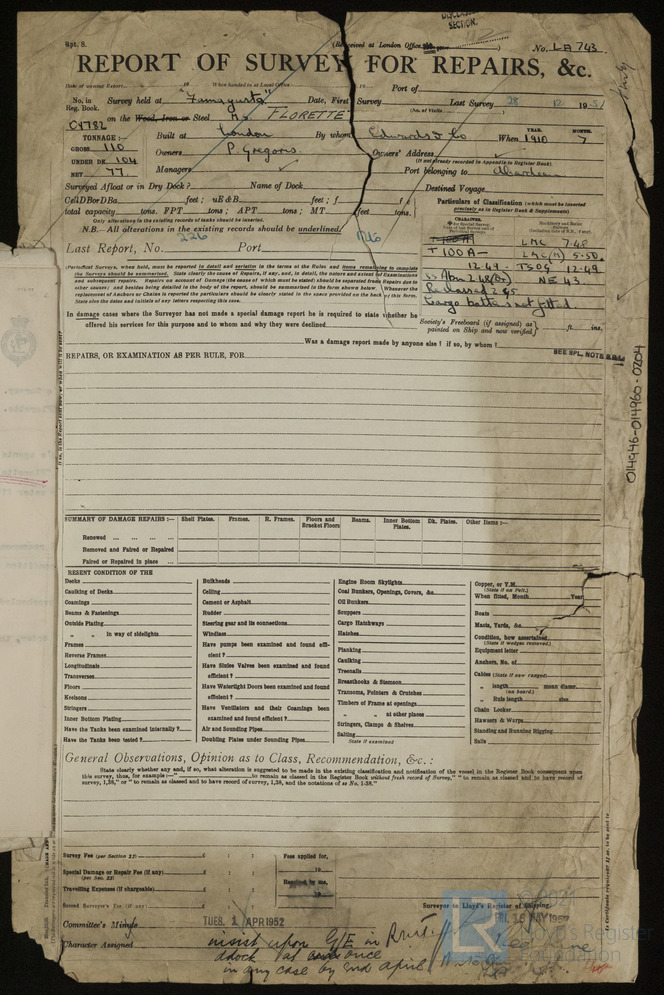 Rpt. 8.
(Received at London Office
DISCLASSED SECTION.
No. LA 743
REPORT OF SURVEY FOR REPAIRS, &c.
Date of writing Report 19 When handed in at Local Office 19 Port of
No. in Reg. Book. Survey held at "Famagusta" Date, First Survey Last Survey 28 12 1951
(No. of Visits)
04782 on the Wood, Iron or Steel M.s. FLORETTE
TONNAGE:— Built at London By whom Edwards & Co When 1910 7
YEAR. MONTH.
GROSS 110 Owners P. Gregoris Owners' Address
(If not already recorded in Appendix to Register Book)
UNDER DK. 104
NET 77 Managers Port belonging to Aberdeen
Surveyed Afloat or in Dry Dock? Name of Dock Destined Voyage
CellDBorDBa feet; uE&B feet; f feet
total capacity tons. FPT tons; APT tons; MT feet tons
Only alterations in the existing records of tanks should be inserted.
N.B.—All alterations in the existing records should be underlined.
Last Report, No. 226 Port
Particulars of Classification (which must be inserted precisely as in Register Book & Supplements)
CHARACTER.
T 100A LMC 7.48
T 100A— LMC(M) 5.50
12.49 - TSOG 12.49
NE 43
Reclassed 2.45
Cargo battens not fitted
(Periodical Surveys, when held, must be reported in detail and seriatim in the terms of the Rules and items remaining to complete
the Surveys should be summarised. State clearly the cause of Repairs, if any, and, in detail, the nature and extent of Examinations
and subsequent repairs. Repairs on account of Damage (the cause of which must be stated) should be separated from Repairs due to
other causes; and besides being detailed in the body of the report, should be summarised in the form shown below. Whenever the
replacement of Anchors or Chains is reported the particulars should be clearly stated in the space provided on the back of this Form.
State also the dates and initials of any letters respecting this case.
In damage cases where the Surveyor has not made a special damage report he is required to state whether he
offered his services for this purpose and to whom and why they were declined
Society's Freeboard (if assigned) as painted on Ship and now verified} ft. ins.
Was a damage report made by anyone else? if so, by whom?
SEE SPL. NOTE
REPAIRS, OR EXAMINATION AS PER RULE, FOR
014946-014960-0204
SUMMARY OF DAMAGE REPAIRS:— Shell Plates. Frames. R. Frames. Floors and Bracket Floors Beams. Inner Bottom Plates. Dk. Plates. Other Items:—
Renewed ... ... ...
Removed and Faired or Repaired
Faired or Repaired in place ...
RESENT CONDITION OF THE
Decks
Caulking of Decks
Coamings
Beams & Fastenings
Outside Plating
" " in way of sidelights
Frames
Reverse Frames
Longitudinals
Transverses
Floors
Keelsons
Stringers
Inner Bottom Plating
Have the Tanks been examined internally?
Have the Tanks been tested?
Bulkheads
Ceiling
Cement or Asphalt
Rudder
Steering gear and its connections
Windlass
Have pumps been examined and found efficient?
Have Sluice Valves been examined and found efficient?
Have Watertight Doors been examined and found efficient?
Have Ventilators and their Coamings been examined and found efficient?
Air and Sounding Pipes
Doubling Plates under Sounding Pipes
Engine Room Skylights
Coal Bunkers, Openings, Covers, &c.
Oil Bunkers
Scuppers
Cargo Hatchways
Hatches
Planking
Caulking
Treenails
Breasthooks & Stemson
Transoms, Pointers & Crutches
Timbers of Frame at openings
" " at other places
Stringers, Clamps & Shelves
Salting
(State if examined)
Copper, or Y.M.
(State if on Felt.)
When fitted, Month Year
Boats
Masts, Yards, &c.
Condition, how ascertained
(State if wedges removed)
Equipment letter
Anchors, No. of
Cables (State if now ranged)
" length mean diamr.
(on board.)
" Rule length size
Chain Locker
Hawsers & Warps
Standing and Running Rigging
Sails
General Observations, Opinion as to Class, Recommendation, &c.:
State clearly whether any, and if so, what alteration is suggested to be made in the existing classification and notification of the vessel in the Register Book consequent upon
this survey, thus, for example:—" to remain as classed in the Register Book without fresh record of Survey," "to remain as classed and to have record of
survey, 1,38," or "to remain as classed and to have record of survey, 1,38, and the notations of ss No. 1-38."
Survey Fee (per Section 23) £ : : Fees applied for,
Special Damage or Repair Fee (if any) (per Sec. 23) £ : : 19
Travelling Expenses (if chargeable) £ : : Received by me,
Second Surveyor's Fee (if any) £ : : 19
Surveyor to Lloyd's Register of Shipping.
Committee's Minute TUES. 1 APR 1952 FRI. 16 MAY 1952
Character Assigned insist upon G/E in
ddock at once
in any case by 2nd april
© 2021
LR
Lloyd's Register
Foundation